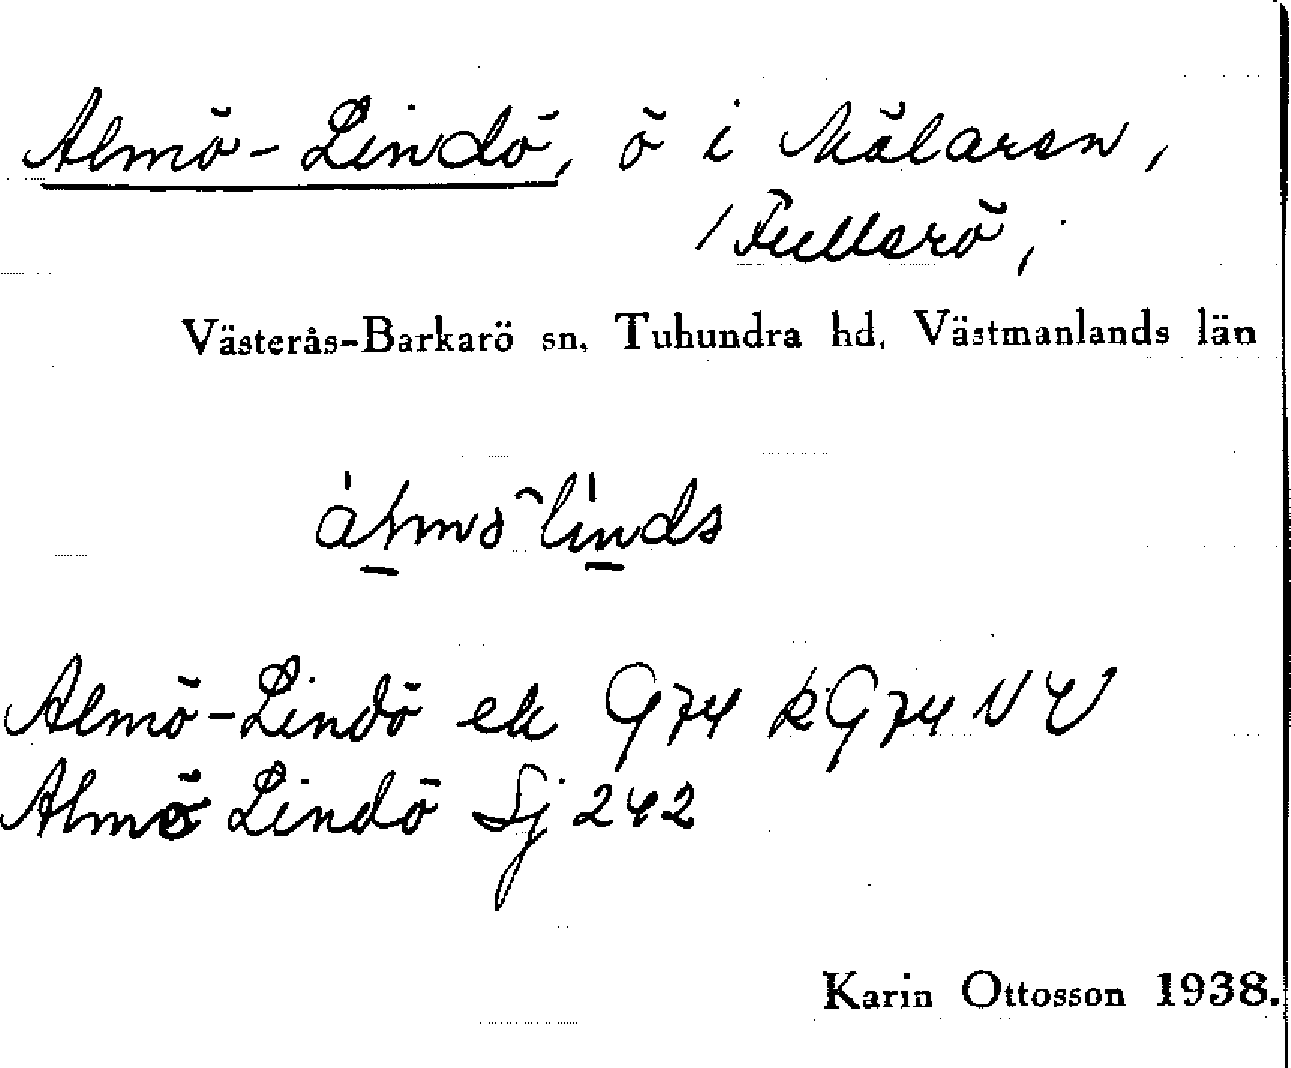 Almö-Lindö, ö i Mälaren,
/ Fullerö,
Västerås-Barkarö sn, Tuhundra hd, Västmanlands län
Almö-Lindö ek G74 RG74 NV
Almö Lindö Sj 242
Karin Ottosson 1938.